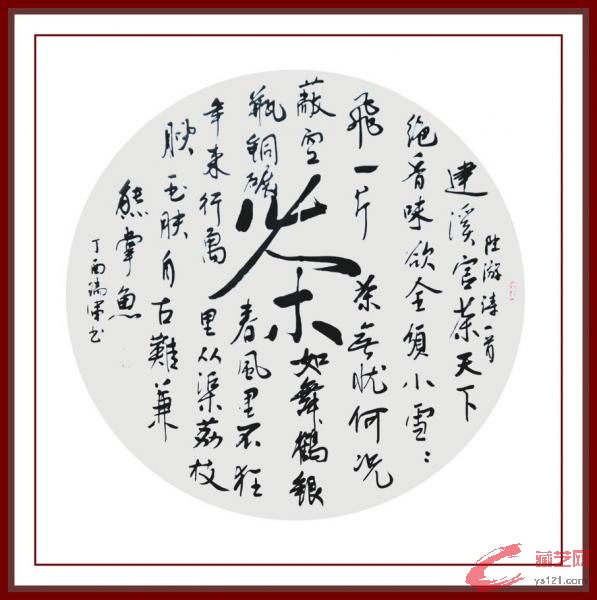 陸游诗一首
建溪官茶天下
绝香味欲全須小雪:
飛一片茶無忧何况
蔽空如舞鶴银
瓶铜碾春風里不狂
年来行萬里从渠荔枝
腴玉肤自古難兼
熊掌魚
丁酉瑞书
茶
藏艺网
ys121.com